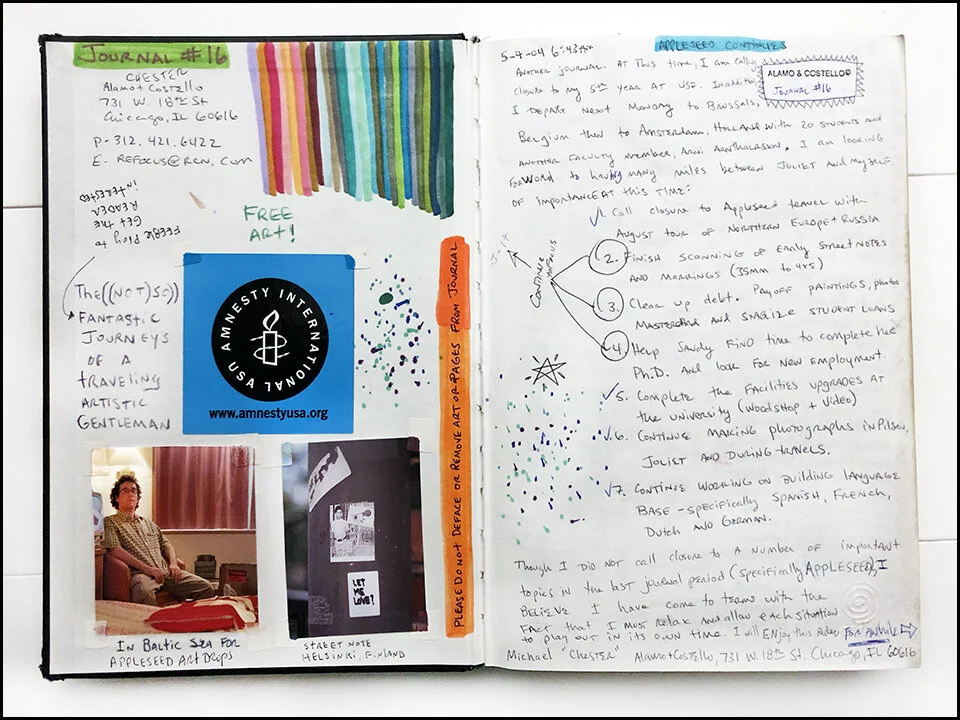 JOURNAL #16
CHESTER
Alamo + Costello
731 W. 18th St
Chicago, IL 60616
P-312.421.6422
E- REFOCUS@RCN.COM
FREE
ART!
FEEBLE Ploy to
Get the
READER
INTERESTED
The ((NOT) SO))
FANTASTIC
JOURNEYS
OF A
TRAVELING
ARTISTIC
GENTLEMAN
AMNESTY INTERNATIONAL USA
www.amnestyusa.org
PLEASE DO NOT DEFACE OR REMOVE ART OR PAGES FROM JOURNAL
LET
ME
LOVE!
IN Baltic Sea FOR
APPLESEED ART DROPS
STREET NOTE
HELSINKI, FINLAND
APPLESEED CONTINUES
5-4-04 6:43am
ALAMO & COSTELLO©
JOURNAL #16
ANOTHER JOURNAL. AT THIS TIME, I AM CALLING
CLOSURE TO MY 5th YEAR AT USF. IN ADDITION
I DEPART NEXT MONDAY TO BRUSSELS,
BELGIUM THEN TO AMSTERDAM, HOLLAND WITH 20 STUDENTS AND
ANOTHER FACULTY MEMBER, I AM LOOKING
FORWORD TO HAVING MANY MILES BETWEEN JOLIET AND MYSELF.
OF IMPORTANCE AT THIS TIME:
1. Call closure to Appleseed travel with
AUGUST TOUR OF NORTHERN EUROPE + RUSSIA
2. FINISH SCANNING OF EARLY STREET NOTES
AND MARKINGS (35mm to 4x5)
3. Clear up debt. Payoff paintings, photos
MASTERCARD AND STUDENT LOANS
4. Help Sandy FIND time to complete her
Ph.D. AND look FOR NEW EMPLOYMENT.
CONTINUE
5. Complete the Facilities upgrades at
the university (WOODSHOP + VIDEO)
6. CONTINUE MAKING PHOTOGRAPHS IN PILSEN,
JOLIET AND DURING TRAVELS.
7. CONTINUE WORKING ON BUILDING LANGUAGE
BASE - SPECIFICALLY SPANISH, FRENCH,
DUTCH AND GERMAN.
Though I DID NOT call closure to A NUMBER OF IMPORTANT
topics in the last journal period (specifically APPLESEED), I
BELIEVE I have come to terms with the
FACT that I MUST RELAX AND allow each situation
to play out in its own time. I will ENJOY this FOR AWHILE
Michael "Chester" Alamo + Costello, 731 W. 18th St. Chicago, FL 60616